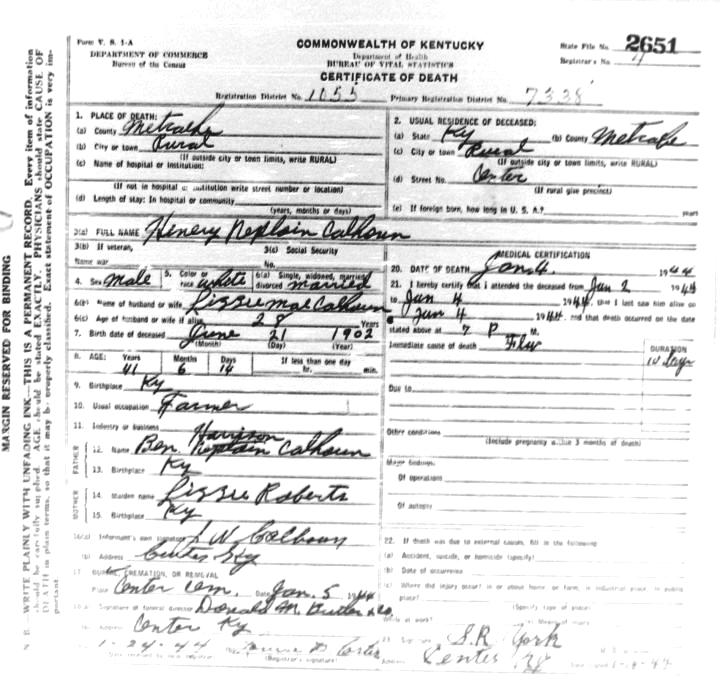 Form V. S. 1-A
DEPARTMENT OF COMMERCE
Bureau of the Census
COMMONWEALTH OF KENTUCKY
Department of Health
BUREAU OF VITAL STATISTICS
CERTIFICATE OF DEATH
State File No. 2651
Registrar's No.
Registration District No. 1055 Primary Registration District No. 7338
1. PLACE OF DEATH:
(a) County Metcalfe
(b) City or town Rural
(If outside city or town limits, write RURAL)
(c) Name of hospital or institution:
(If not in hospital or institution write street number or location)
(d) Length of stay: In hospital or community
(years, months or days)
2. USUAL RESIDENCE OF DECEASED:
(a) State Ky (b) County Metcalfe
(c) City or town Rural
(If outside city or town limits, write RURAL)
(d) Street No. Center
(If rural give precinct)
(e) If foreign born, how long in U. S. A.? years
3(a) FULL NAME Henery Calhoun
3(b) If veteran,
Name war
3(c) Social Security
No.
4. Sex Male 5. Color or race white 6(a) Single, widowed, married, divorced married
6(b) Name of husband or wife Lizzie Mae Calhoun
6(c) Age of husband or wife if alive 28 Years
7. Birth date of deceased June 21 1902
(Month) (Day) (Year)
8. AGE: Years Months Days If less than one day
41 6 14 hr. min.
9. Birthplace Ky
10. Usual occupation Farmer
11. Industry or business
FATHER
Harrison
12. Name Ben Calhoun
13. Birthplace Ky
MOTHER
14. Maiden name Lizzie Roberts
15. Birthplace Ky
16(a) Informant's own signature J W Calhoun
(b) Address Center Ky
17. BURIAL, CREMATION, OR REMOVAL
Place Center Cem. Date Jan. 5 1944
(a) Signature of funeral director Donald M. Butler & Co.
Address Center Ky
1-24-44
(Registrar's signature)
MEDICAL CERTIFICATION
20. DATE OF DEATH Jan. 4. 1944
21. I hereby certify that I attended the deceased from Jan 2 1944
to Jan 4 1944, that I last saw him alive on
Jan 4 1944, and that death occurred on the date
stated above at 7 P M.
Immediate cause of death Flu
DURATION
10 Days
Due to
Other conditions
(Include pregnancy within 3 months of death)
Major findings:
Of operations
Of autopsy
22. If death was due to external causes, fill in the following
(a) Accident, suicide, or homicide (specify)
(b) Date of occurrence
(c) Where did injury occur? in or about home or farm, in industrial place, in public place?
(Specify type of place)
While at work? Means of injury
23. Signature S.R. York
Address Center Ky
MARGIN RESERVED FOR BINDING
N. B.—WRITE PLAINLY WITH UNFADING INK—THIS IS A PERMANENT RECORD. Every item of information
should be carefully supplied. AGE should be stated EXACTLY. PHYSICIANS should state CAUSE OF
DEATH in plain terms, so that it may be properly classified. Exact statement of OCCUPATION is very important